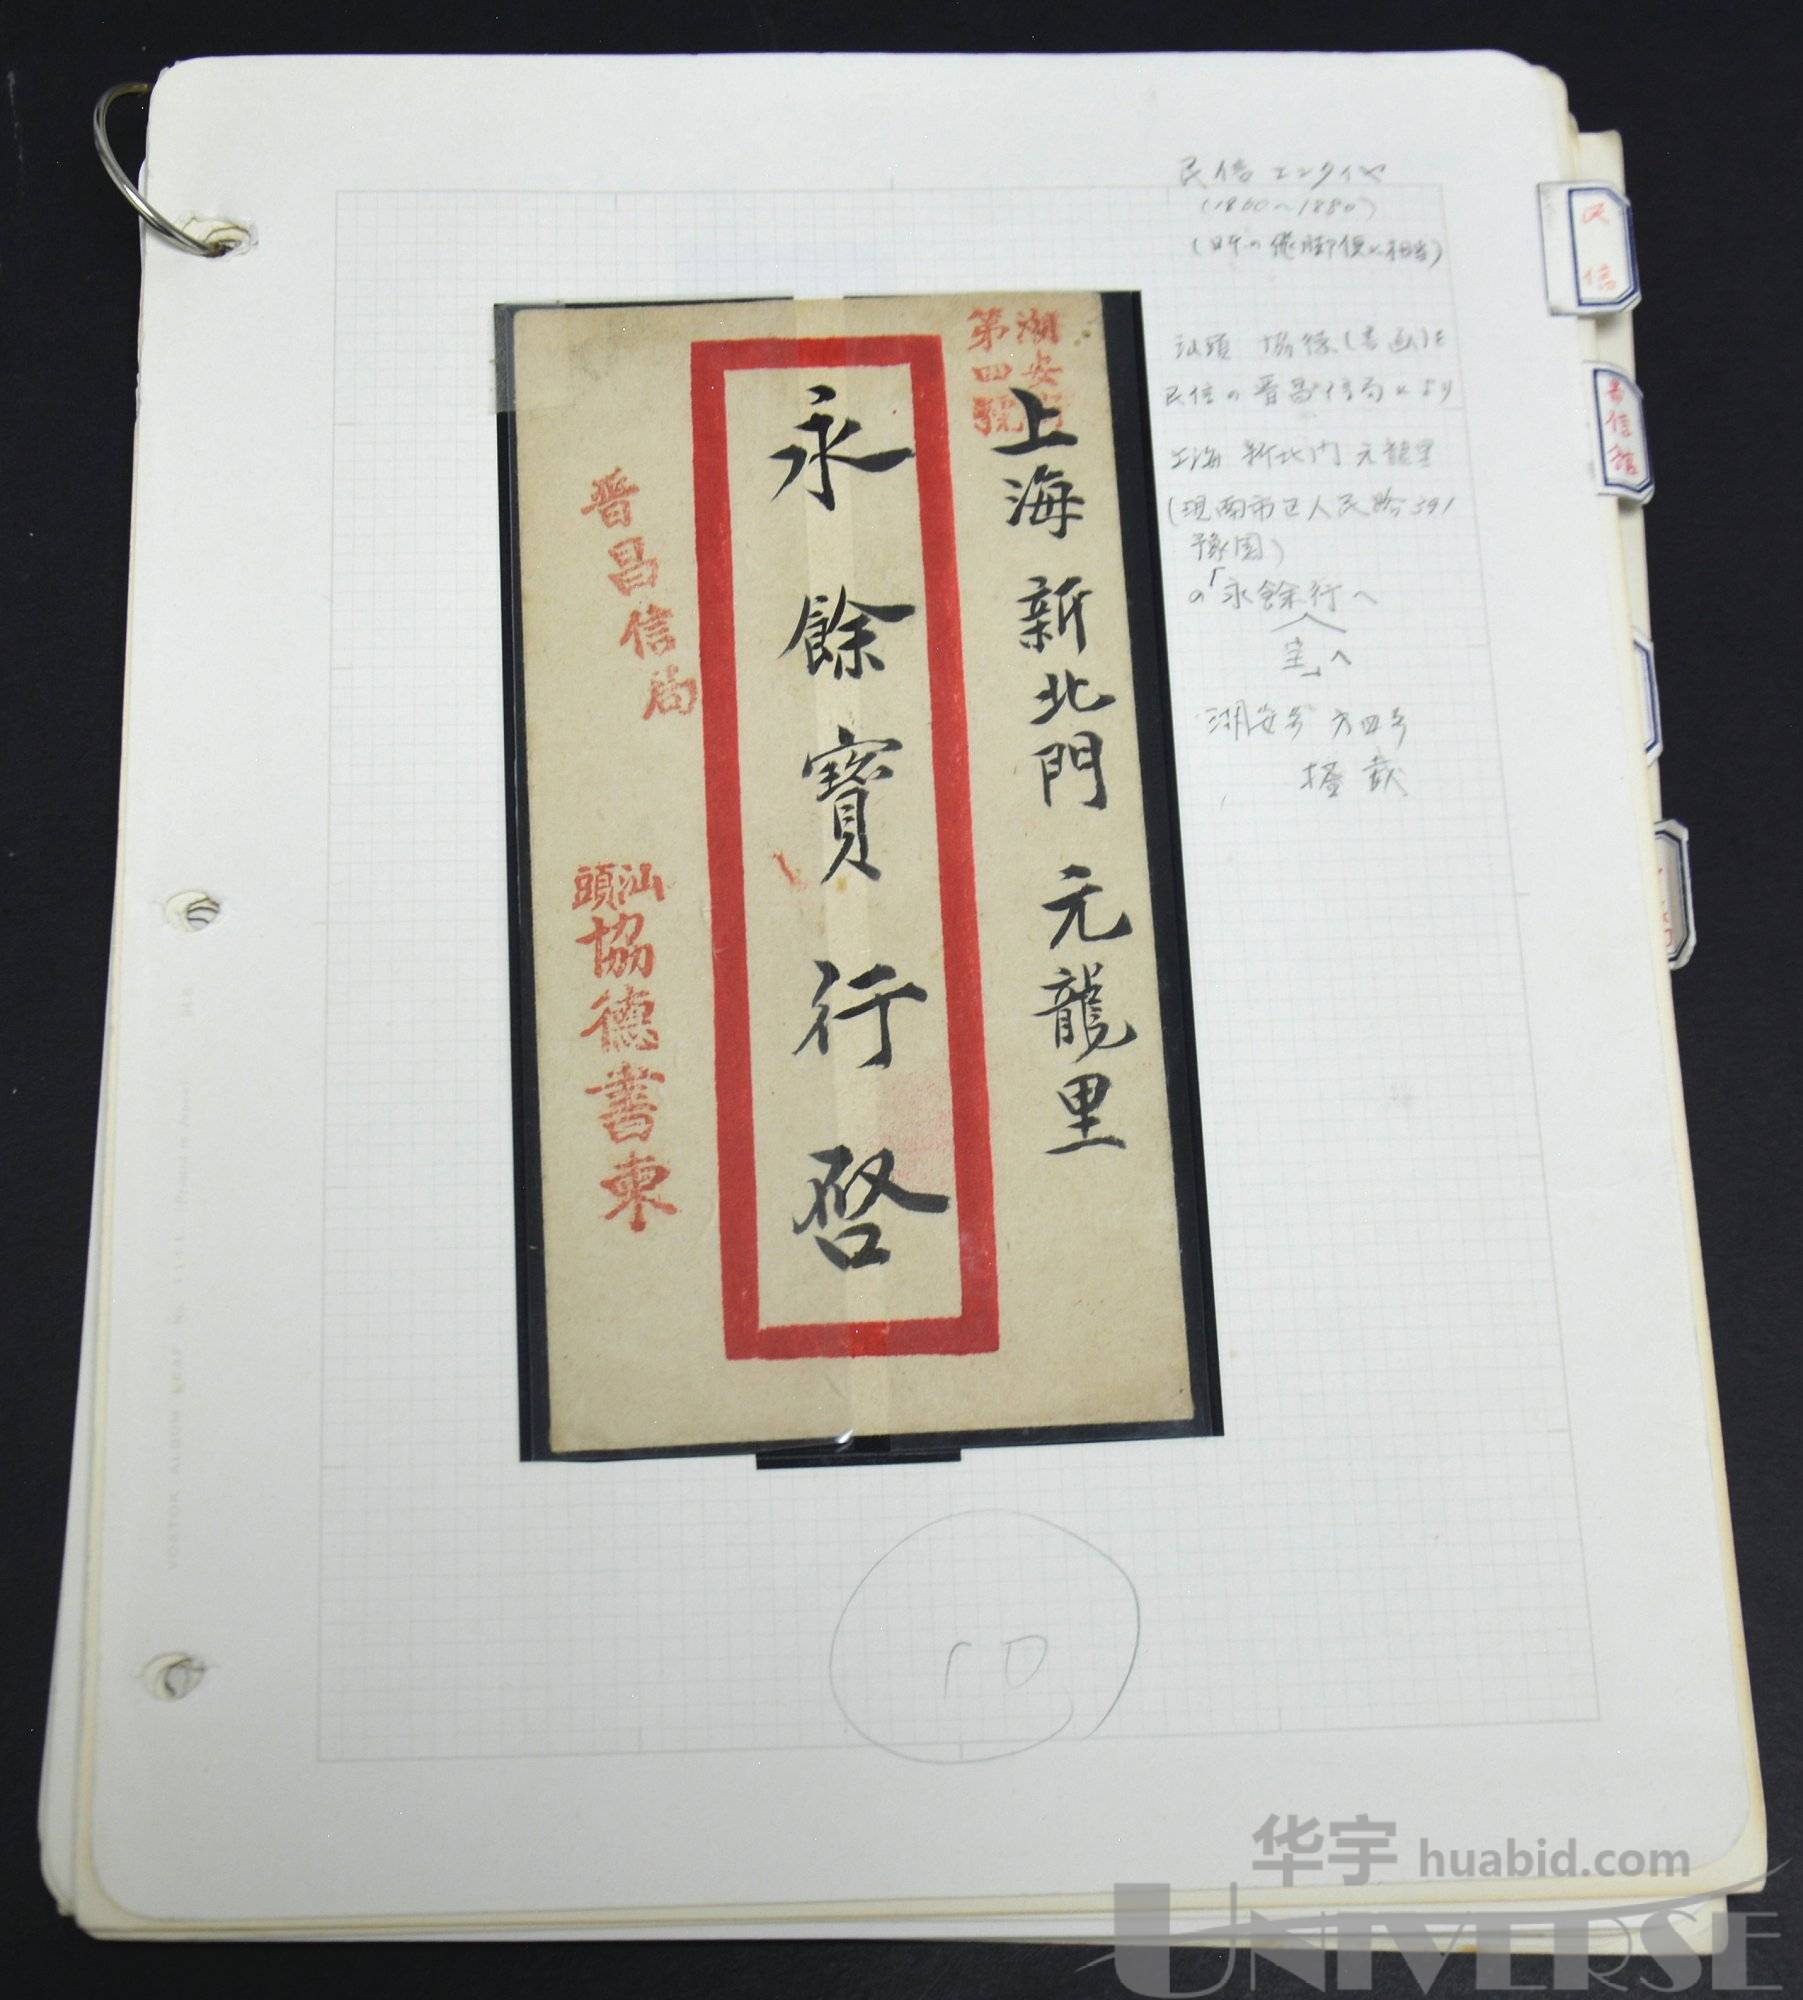 民信エンタイヤ
(1860〜1880)
(日本の飛脚便に相当)
汕頭 協德(書画)を
民信の晋昌信局により
上海 新北門 元龍里
(現南市区人民路391
豫園)
の「永餘行へ
宝」へ
湖安号 第四号
搭載
湖安
第四號
上海 新北門 元龍里
永餘寶行啓
晋昌信局
汕頭
協德書柬
民信
書信館
10
华宇 huabid.com
UNIVERSE